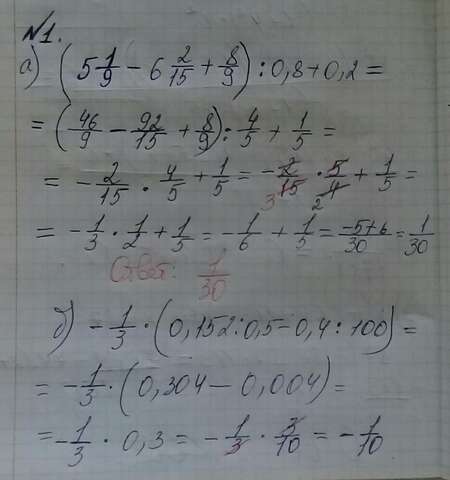 №1.
а) (5 1/9 − 6 2/15 + 8/9) : 0,8 + 0,2 =
= (46/9 − 92/15 + 8/9) : 4/5 + 1/5 =
= − 2/15 · 4/5 + 1/5 = − 2/15 · 5/4 + 1/5 =
3 2
= − 1/3 · 1/2 + 1/5 = − 1/6 + 1/5 = −5+6/30 = 1/30
Ответ: 1/30
б) − 1/3 · (0,152 : 0,5 − 0,4 : 100) =
= − 1/3 · (0,304 − 0,004) =
= − 1/3 · 0,3 = − 1/3 · 3/10 = − 1/10